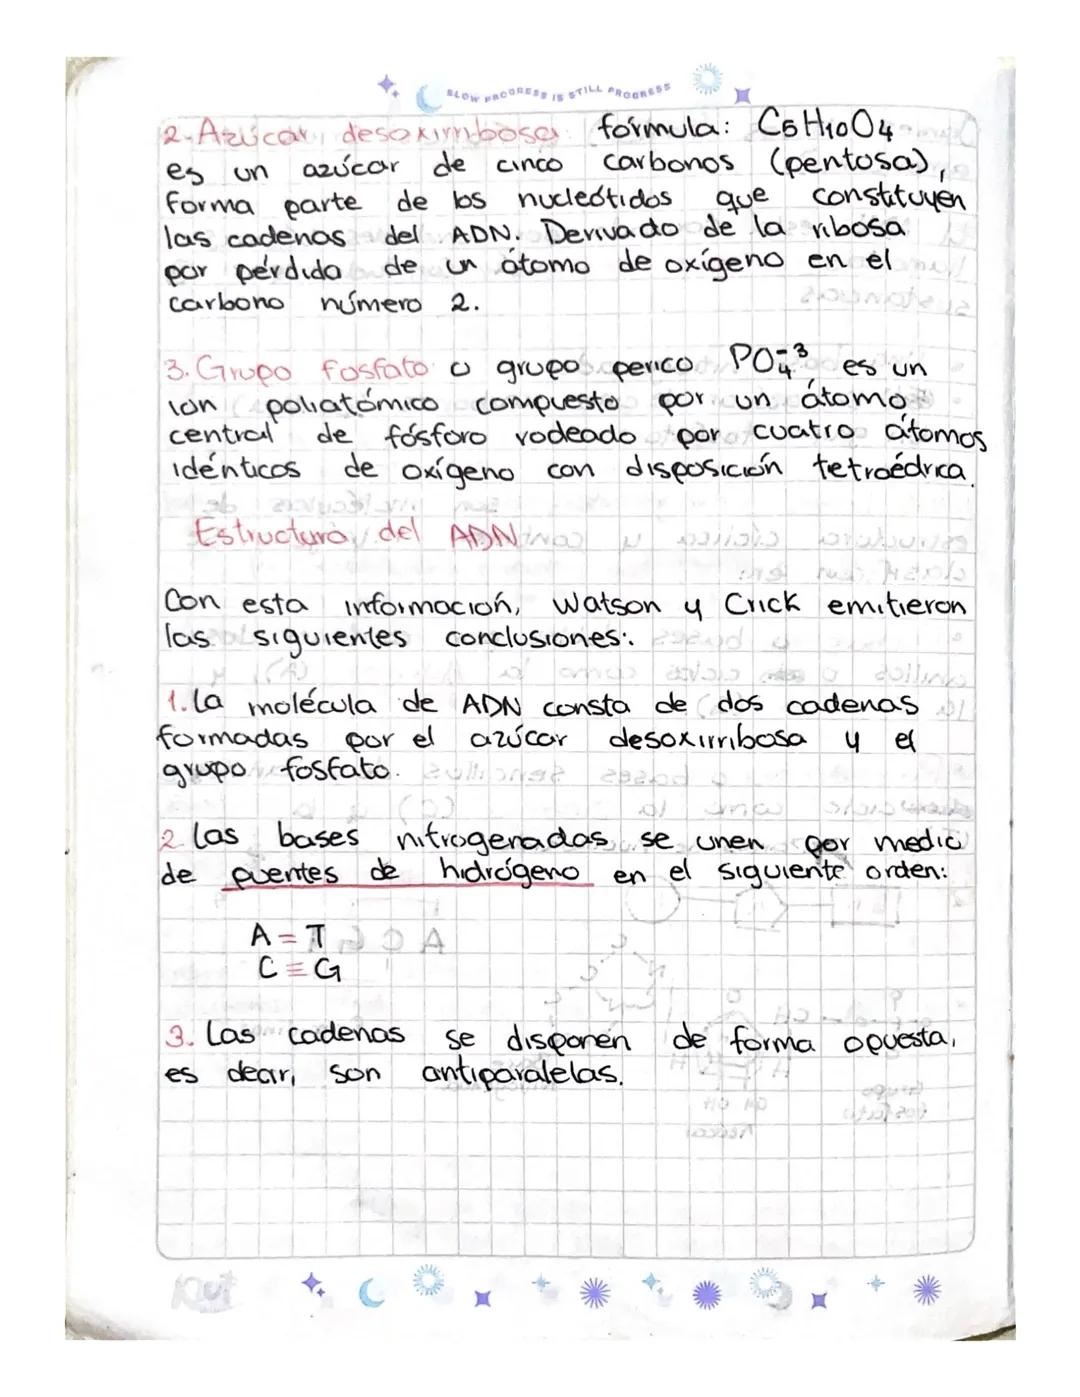 SLOW PROGRESS IS STILL PROGRESS
2-Azúcar desoxirribosa: fórmula: C5H10O4
es un azúcar de cinco carbonos (pentosa),
forma parte de los nucleótidos que constituyen
las cadenas del ADN. Derivado de la ribosa
por pérdida de un átomo de oxígeno en el
carbono número 2.
3. Grupo fosfato o grupo perico PO4-3 es un
ion poliatómico compuesto por un átomo
central de fósforo rodeado por cuatro átomos
idénticos de oxígeno con disposición tetraédrica.
Estructura del ADN
Con esta información, Watson y Crick emitieron
las siguientes conclusiones:
1. La molécula de ADN consta de dos cadenas
formadas por el azúcar desoxirribosa y el
grupo fosfato.
2. Las bases nitrogenadas se unen por medio
de puentes de hidrógeno en el siguiente orden:
A = T
C ≡ G
3. Las cadenas se disponen de forma opuesta,
es decir, son antiparalelas.